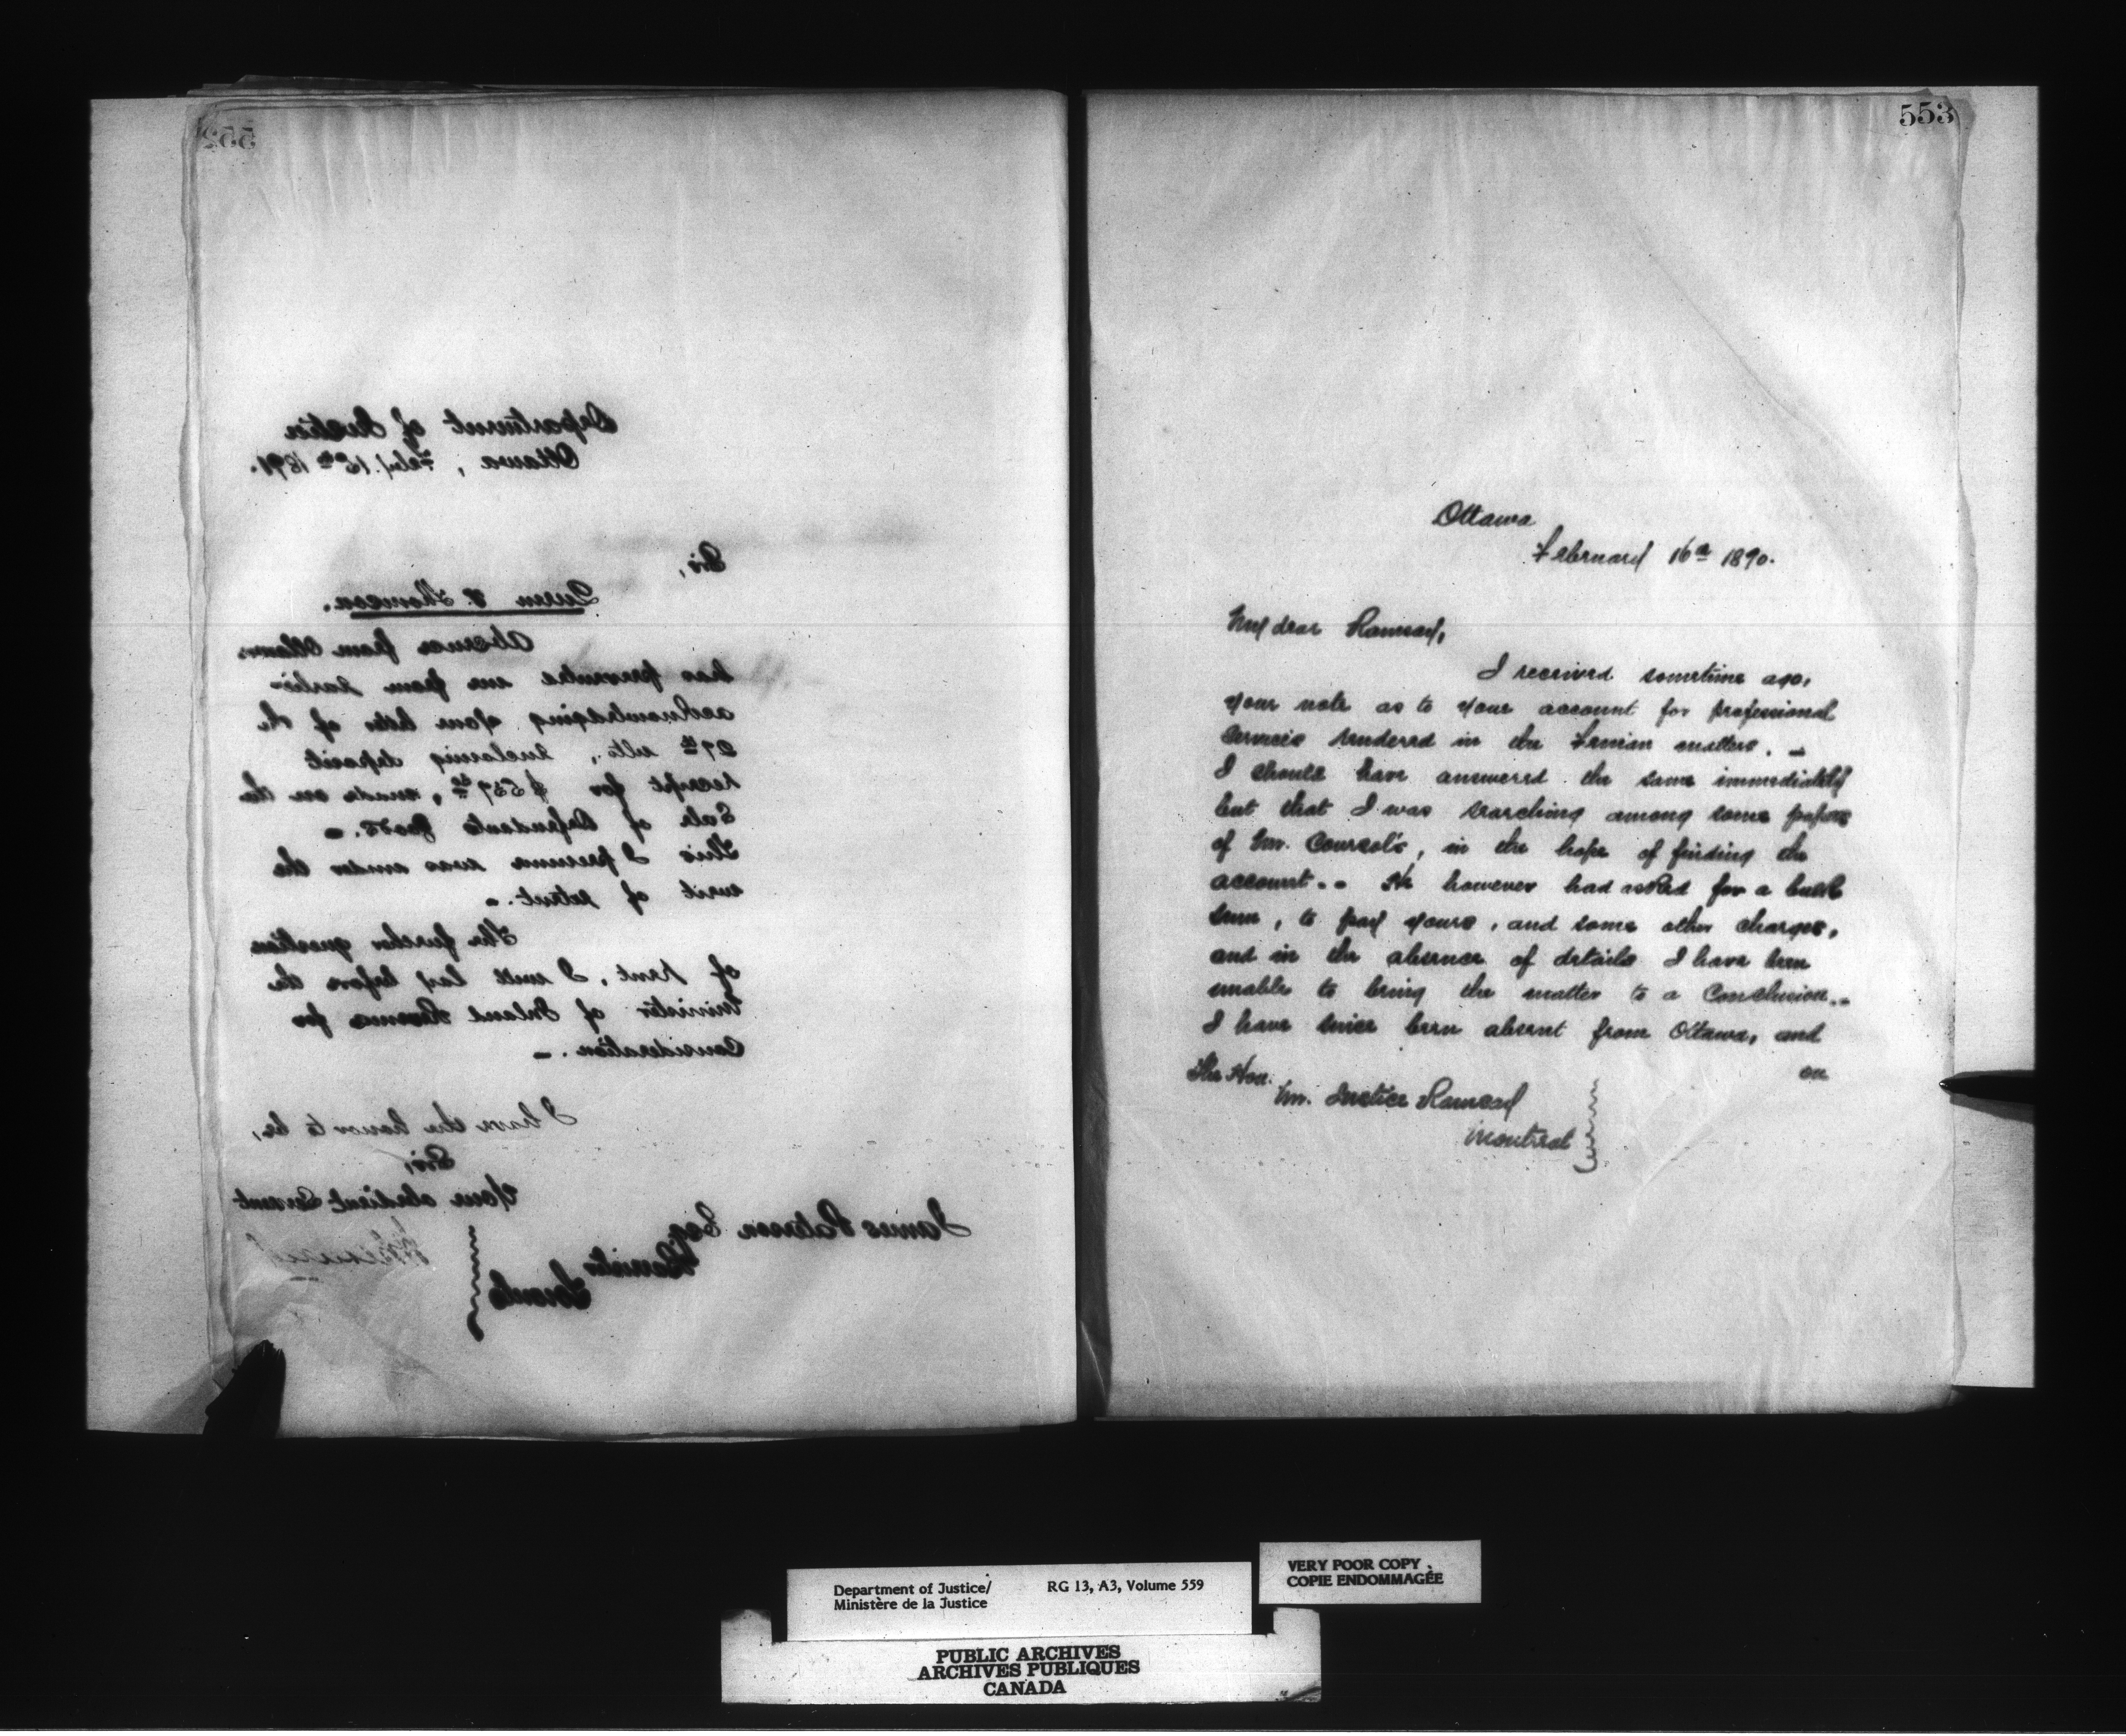 552
Department of Justice
Ottawa, Feby. 18th 1871.
Sir,
Queen v. Thomson.
Absence from Ottawa
has prevented me from earlier
acknowledging your letter of the
27th ulto, enclosing deposit
receipt for $ made on the
Sale of Defendants goods. -
This I presume was under the
writ of extent. -
The further question
of rent, I will lay before the
Minister of Inland Revenue for
Consideration. -
I have the honor to be,
Sir,
Your obedient Servant
James Paterson Esq.
Barrister
Toronto
553
Ottawa
February 16th 1870.
My dear Ramsay,
I received sometime ago,
your note as to your account for professional
services rendered in the Fenian matters. -
I should have answered the same immediately
but that I was searching among some papers
of Mr. Coursol's, in the hope of finding the
account. - He however had asked for a bulk
sum, to pay yours, and some other charges,
and in the absence of details I have been
unable to bring the matter to a Conclusion. -
I have since been absent from Ottawa, and
on
The Hon.
Mr. Justice Ramsay
Montreal
Department of Justice/
Ministère de la Justice
RG 13, A3, Volume 559
VERY POOR COPY
COPIE ENDOMMAGÉE
PUBLIC ARCHIVES
ARCHIVES PUBLIQUES
CANADA